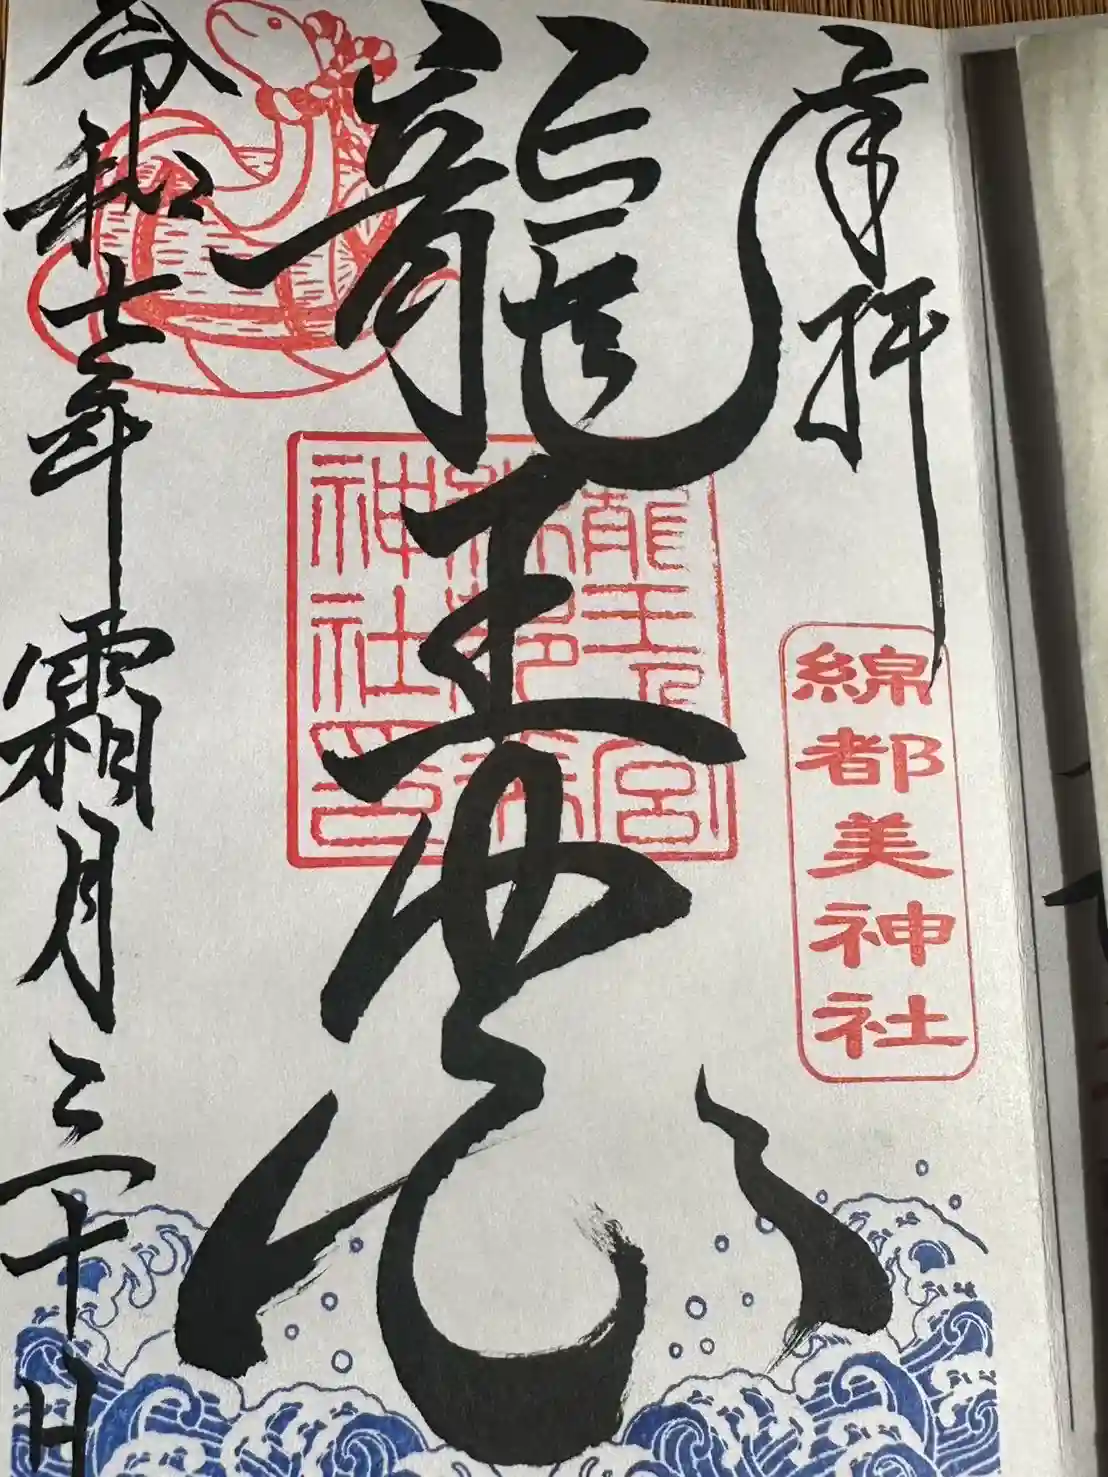 奉拝
綿都美神社
龍王
龍王乃宮
綿都美
神社印
令和七年霜月三十日